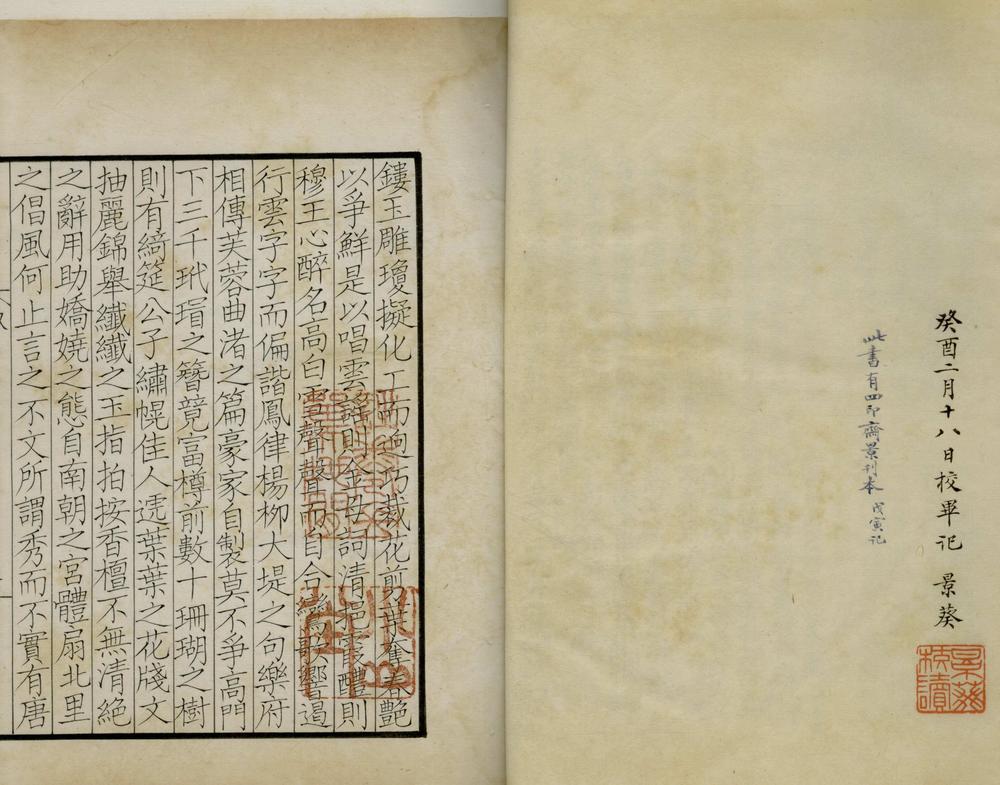 癸酉二月十八日校畢記 景葵
此書有四印齋景刊本 戊寅記
景葵校讀
鏤玉雕瓊擬化工而迥巧裁花剪葉奪春艷
以爭鮮是以唱雲謠則金母詞清挹霞醴則
穆王心醉名高白雪聲聲而自合鸞歌響遏
行雲字字而偏諧鳳律楊柳大堤之句樂府
相傳芙蓉曲渚之篇豪家自製莫不爭高門
下三千玳瑁之簪競富樽前數十珊瑚之樹
則有綺筵公子繡幌佳人遞葉葉之花牋文
抽麗錦舉纖纖之玉指拍按香檀不無清絕
之辭用助嬌嬈之態自南朝之宮體扇北里
之倡風何止言之不文所謂秀而不實有唐